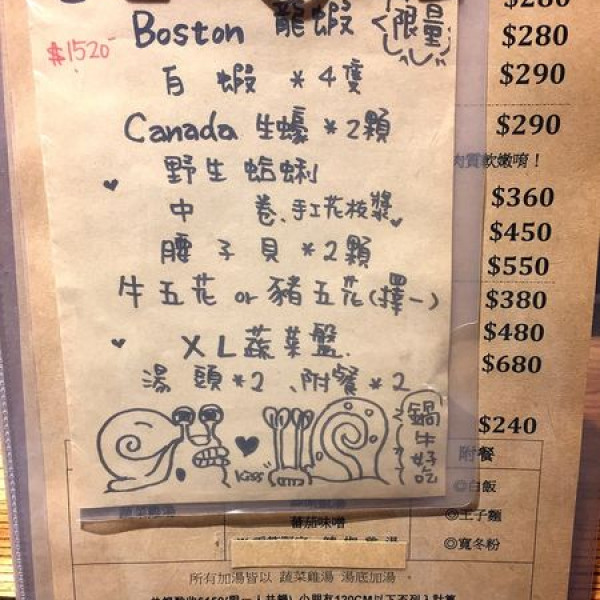 $280
Boston 龍蝦 限量
$1520
$280
白蝦 *4隻
$290
Canada 生蠔 *2顆
$290
肉質軟嫩唷！
野生蛤蜊
$360
中 卷、手工花枝漿
$450
腰子貝 *2顆
$550
牛五花 or 豬五花(擇一)
$380
$480
XL蔬菜盤.
$680
湯頭*2、附餐*2
$240
鍋牛好吃
Kiss
附餐
◎白飯
◎王子麵
蕃茄味噌
◎寬冬粉
所有加湯皆以 蔬菜雞湯 湯底加湯